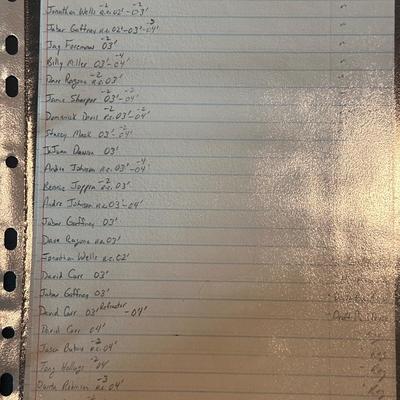 Jonathan Wells r.c. 02' -2 - 03' -2
Jabar Gaffney r.c. 02' - 03' -2 - 04' -3
Jay Foreman 03' -2
Billy Miller 03' - 04' -4
Dave Ragone r.c. 03' -2
Jamie Sharper 03' -2 - 04' -2
Domanick Davis r.c. 03' -2 - 04' -2
Stacey Mack 03' - 04' -2
JaJuan Dawson 03'
Andre Johnson r.c. 03' - 04' -4
Bennie Joppru r.c. 03' -2
Andre Johnson r.c. 03' - 04'
Jabar Gaffney 03'
Dave Ragone r.c. 03'
Jonathan Wells r.c. 02'
David Carr 03'
Jabar Gaffney 03'
David Carr 03' Refractor - 04'
David Carr 04'
Jason Babin r.c. 04' -2
Tony Hollings 04' -2
Dunta Robinson r.c. 04' -3